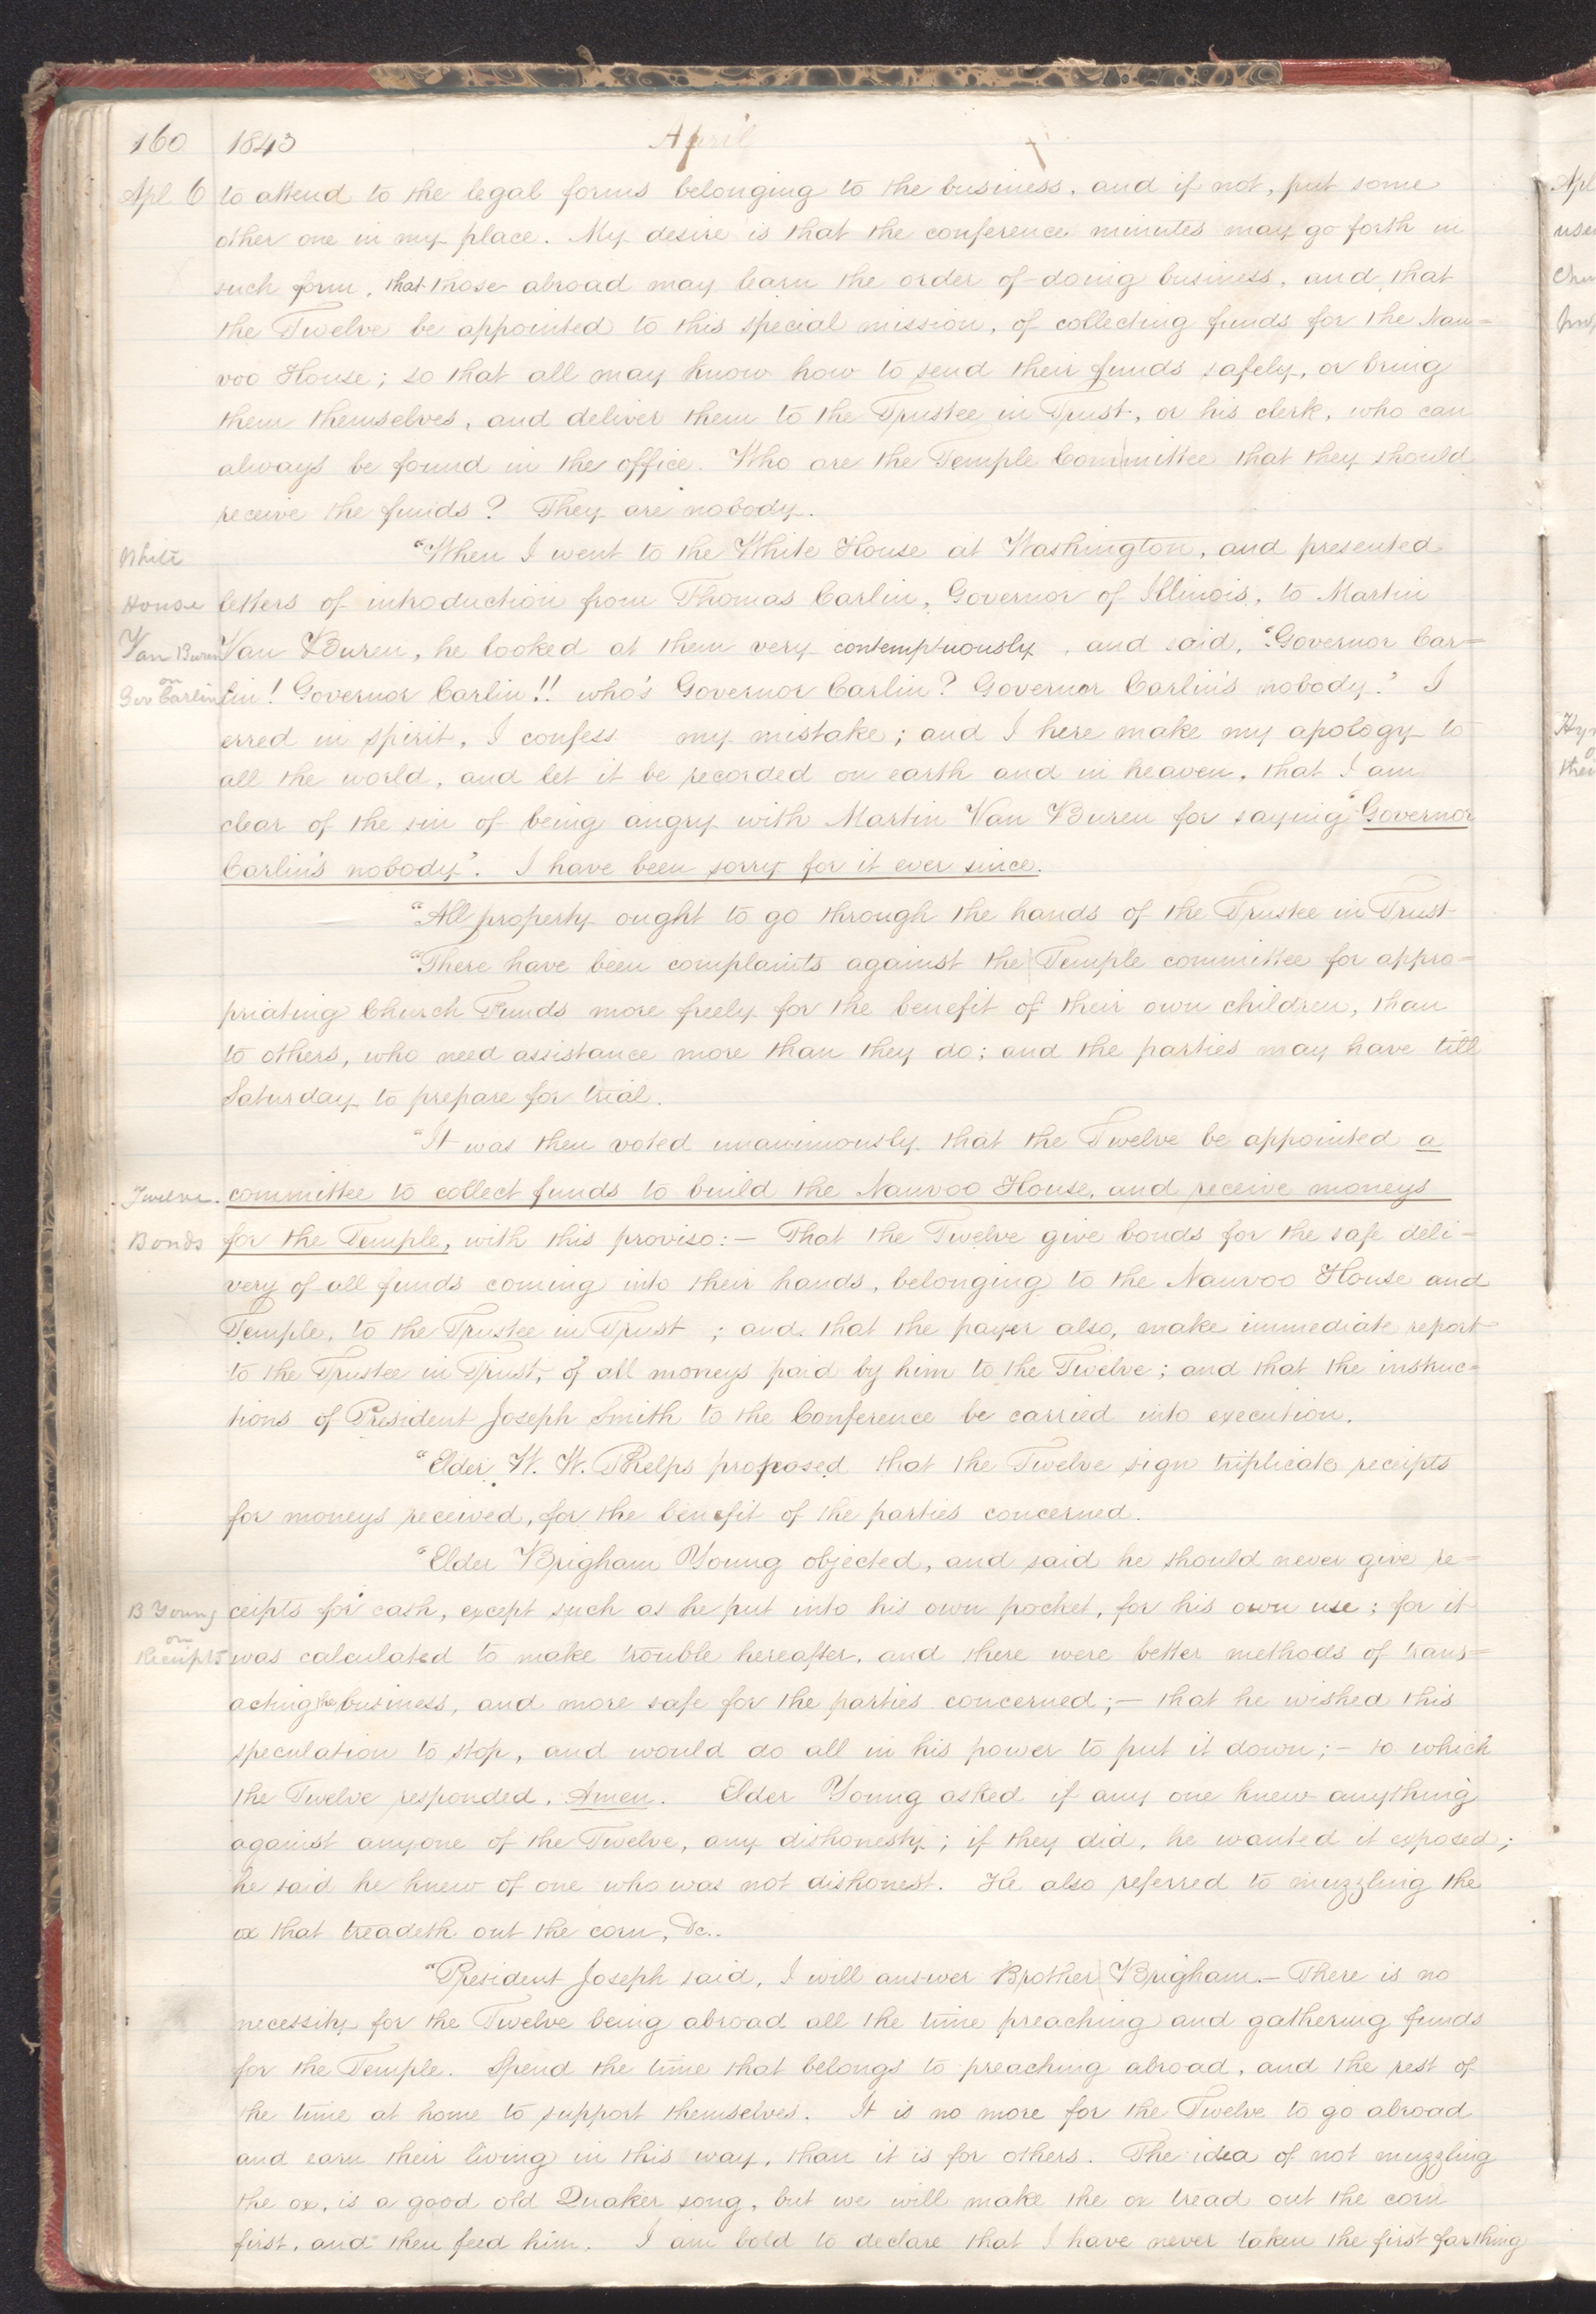 160 1843 April
Apl. 6 to attend to the legal forms belonging to the business, and if not, put some
other one in my place. My desire is that the conference minutes may go forth in
such form, that those abroad may learn the order of doing business, and that
the Twelve be appointed to this special mission, of collecting funds for the Nau=
voo House; so that all may know how to send their funds safely, or bring
them themselves, and deliver them to the Trustee in Trust, or his clerk, who can
always be found in the office. Who are the Temple Committee that they should
receive the funds? They are nobody.
White "When I went to the White House at Washington, and presented
House letters of introduction from Thomas Carlin, Governor of Illinois, to Martin
Van Buren Van Buren, he looked at them very contemptuously, and said, "Governor Car=
on
Gov Carlin lin! Governor Carlin!! who's Governor Carlin? Governor Carlin's nobody." I
erred in spirit, I confess my mistake; and I here make my apology to
all the world, and let it be recorded on earth and in heaven, that I am
clear of the sin of being angry with Martin Van Buren for saying "Governor
Carlin's nobody". I have been sorry for it ever since.
"All property ought to go through the hands of the Trustee in Trust
"There have been complaints against the Temple committee for appro=
priating Church Funds more freely for the benefit of their own children, than
to others, who need assistance more than they do; and the parties may have till
Saturday to prepare for trial.
"It was then voted unanimously that the Twelve be appointed a
Twelve. committee to collect funds to build the Nauvoo House, and receive moneys
Bonds for the Temple, with this proviso:— That the Twelve give bonds for the safe deli-
very of all funds coming into their hands, belonging to the Nauvoo House and
Temple, to the Trustee in Trust; and that the payer also, make immediate report
to the Trustee in Trust, of all moneys paid by him to the Twelve; and that the instruc=
tions of President Joseph Smith to the Conference be carried into execution.
"Elder W. W. Phelps proposed that the Twelve sign triplicate receipts
for moneys received, for the benefit of the parties concerned.
"Elder Brigham Young objected, and said he should never give re=
B Young ceipts for cash, except such as he put into his own pocket, for his own use; for it
on
Receipts was calculated to make trouble hereafter, and there were better methods of trans=
acting the business, and more safe for the parties concerned;— that he wished this
speculation to stop, and would do all in his power to put it down;— to which
the Twelve responded, Amen. Elder Young asked if any one knew anything
against anyone of the Twelve, any dishonesty; if they did, he wanted it exposed;
he said he knew of one who was not dishonest. He also referred to muzzling the
ox that treadeth out the corn, &c..
"President Joseph said, I will answer Brother Brigham.— There is no
necessity for the Twelve being abroad all the time preaching and gathering funds
for the Temple. Spend the time that belongs to preaching abroad, and the rest of
the time at home to support themselves. It is no more for the Twelve to go abroad
and earn their living in this way, than it is for others. The idea of not muzzling
the ox, is a good old Quaker song, but we will make the ox tread out the corn
first, and then feed him. I am bold to declare that I have never taken the first farthing